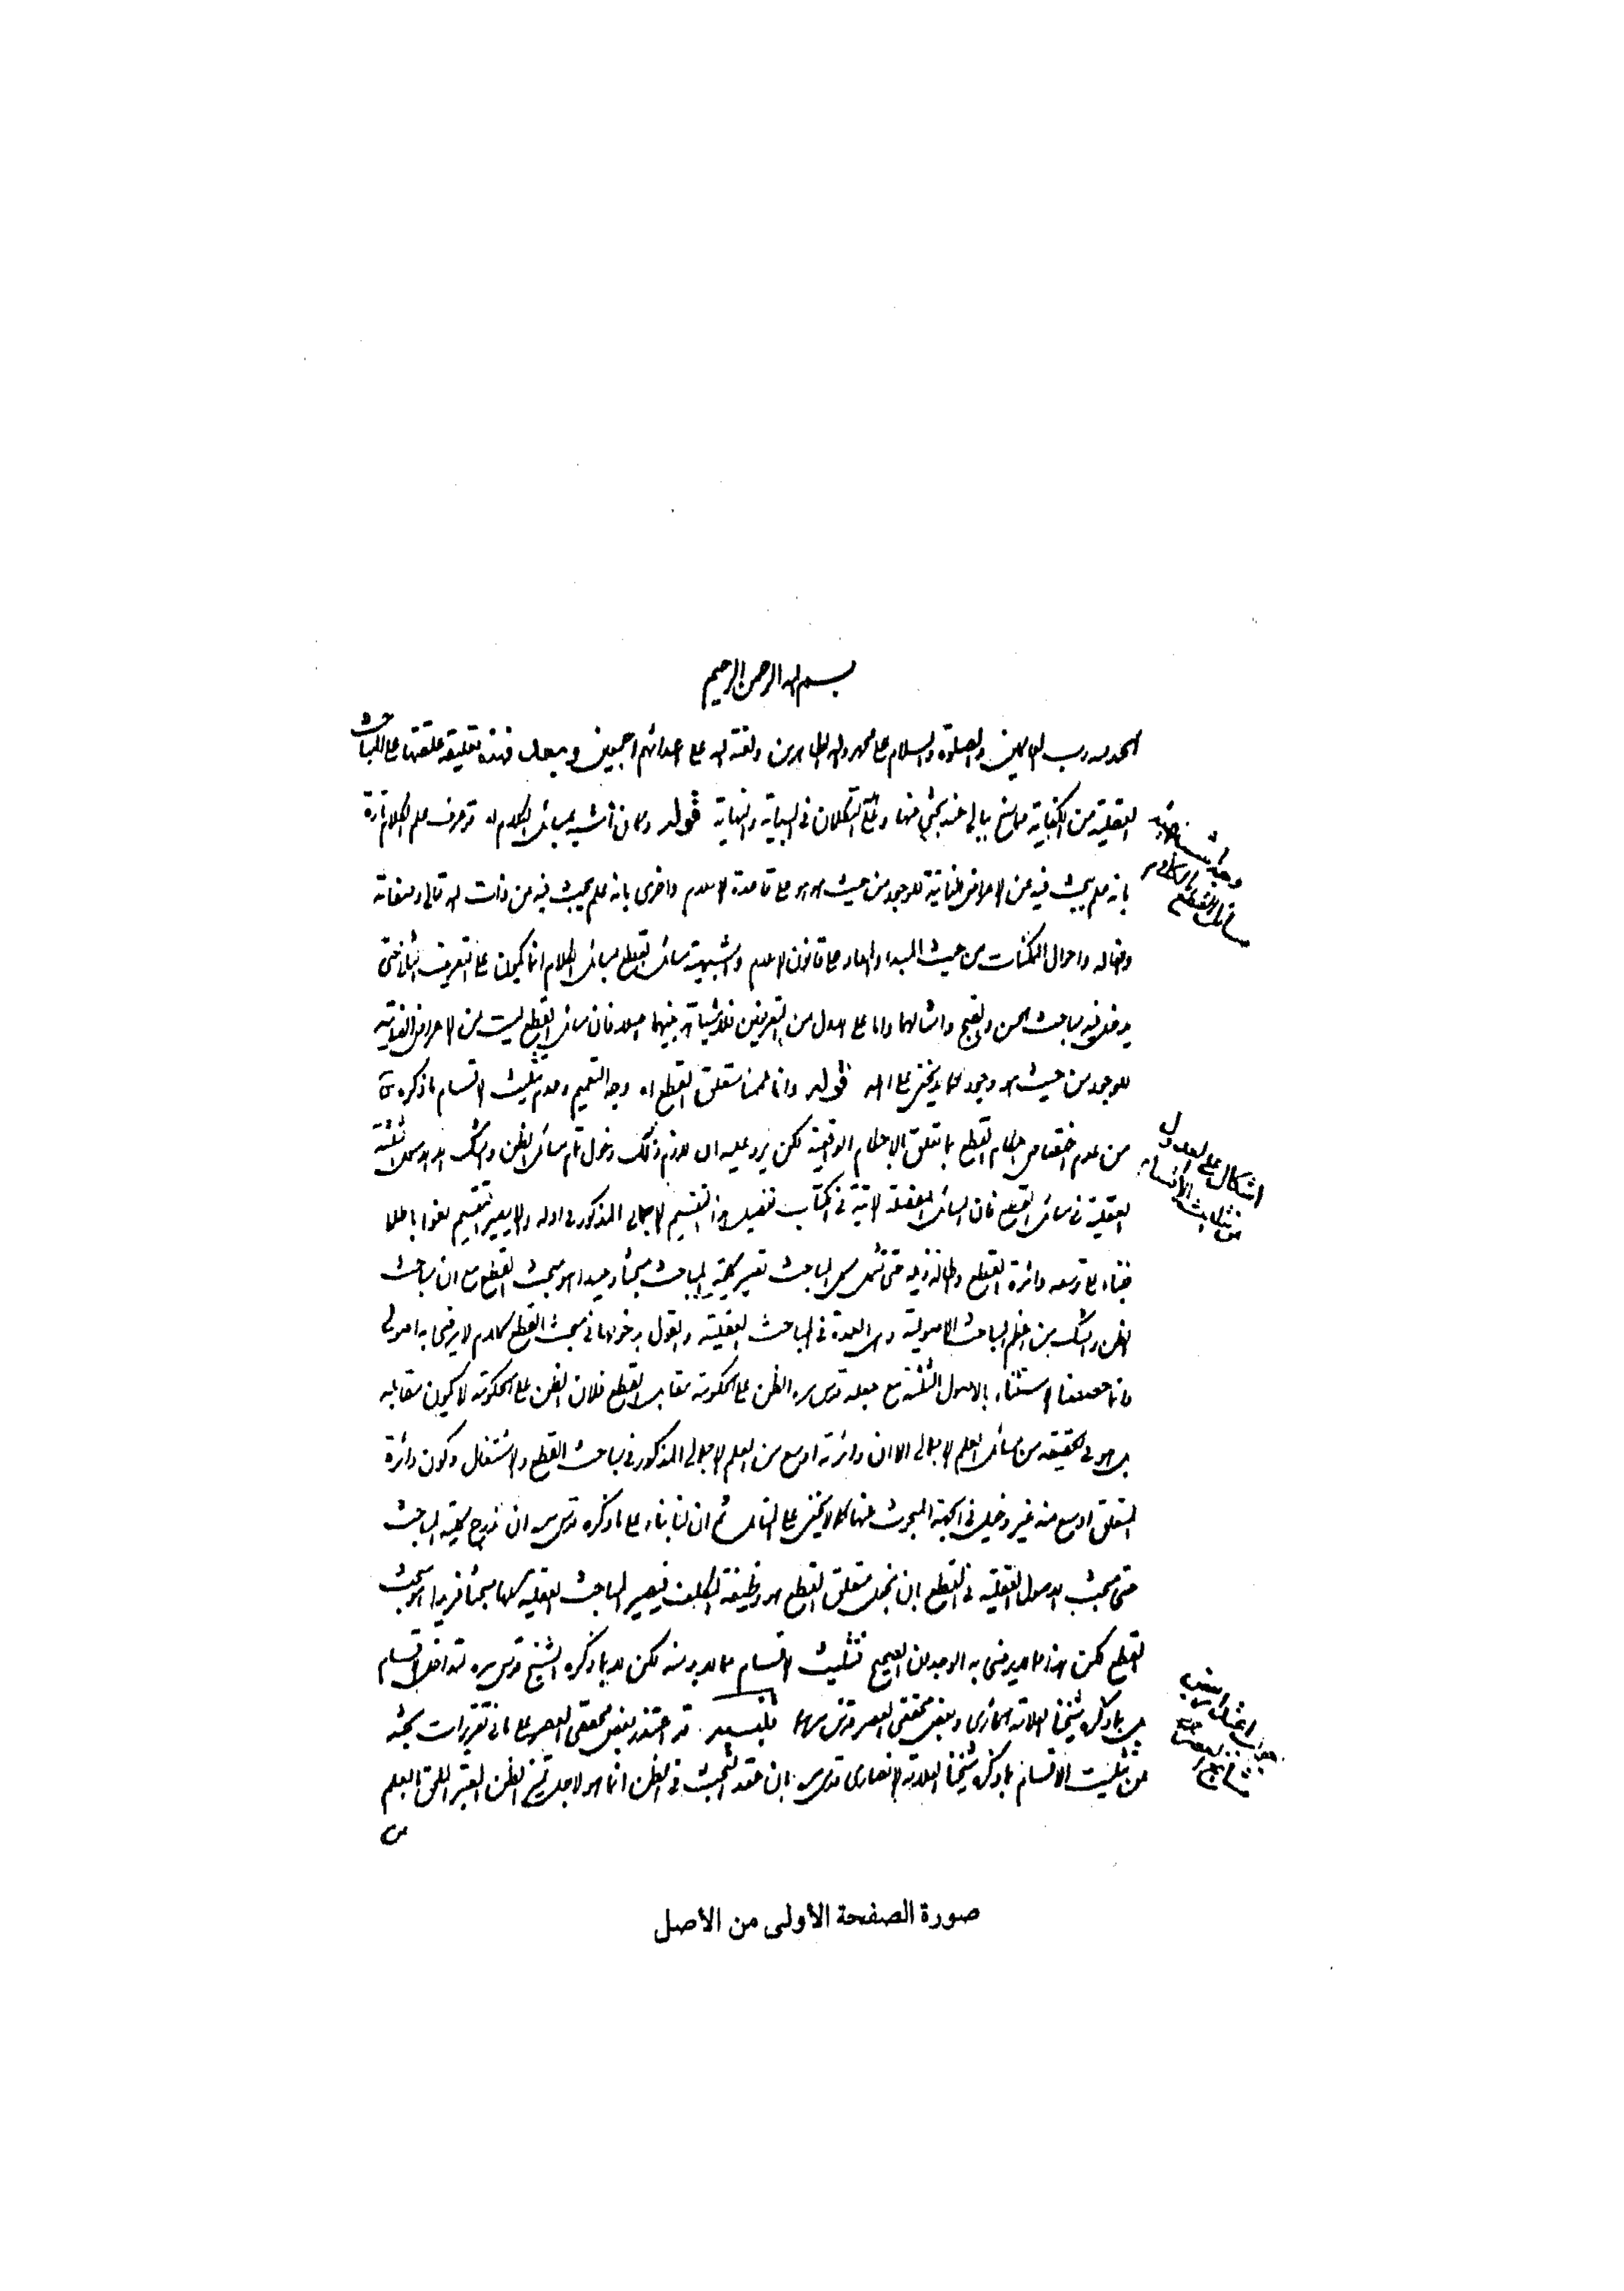 بسم الله الرحمن الرحيم
الحمد لله رب العالمين والصلوة والسلام على محمد وآله الطاهرين ولعنة الله على اعدائهم اجمعين وبعد فهذه تعليقة علقتها على المباحث
العقلية من الكفاية مما سنح ببالي عند بحثي عنها وعلى الله التكلان في البداية والنهاية قوله وكان اشبه بمسائل الكلام اه قد عرف علم الكلام تارة
بانه علم يبحث فيه عن الاعراض الذاتية للموجود من حيث هو هو على قاعدة الاسلام واخرى بانه علم يبحث فيه عن ذات الله تعالى وصفاته
وافعاله واحوال الممكنات من حيث المبدء والمعاد على قانون الاسلام واشبهية مسائل القطع بمسائل الكلام انما يكون على التعريف الثاني حتى
يدخل فيه مباحث الحسن والقبح وامثالهما واما على الاول من التعريفين فلا شباهة بينهما اصلا فان مسائل القطع ليست من الاعراض الذاتية
للموجود من حيث هو موجود كما لا يخفى على اهله قوله وانما عممنا متعلق القطع اه وجه التعميم وعدم تثليث الاقسام ما ذكره
من عدم اختصاص احكام القطع بما تعلق بالاحكام الواقعية لكن يرد عليه ان لازم ذلك دخول تمام مسائل الظن والشك الا الاصول الثلثة
العقلية في مسائل القطع فان المسائل المفصلة الآتية في الكتاب تفصيل هذا التقسيم الاجمالي المذكور في اوله والا يصير التقسيم لغوا باطلا
فبناء على توسعة دائرة القطع واطالة ذيله حتى تشمل كل المباحث تصير كلية المباحث مبحثا وحيدا هو مبحث القطع مع ان مباحث
الظن والشك من اعظم المباحث الاصولية وهي العمدة في المباحث العقلية والقول بدخولها في مبحث القطع كلام لا يرضى به اصولي
وانما خصصنا الاستثناء بالاصول الثلثة مع جعله قدس سره الظن على الحكومة مقابل القطع فلان الظن على الحكومة لا يكون مقابله
بل هو في الحقيقة من مسائل العلم الاجمالي الا ان دائرته اوسع من العلم الاجمالي المذكور في مباحث القطع والاشتغال وكون دائرة
المتعلق اوسع منه غير دخيل في الجهة المبحوث عنها كما لا يخفى على المتأمل ثم ان لنا بناء على ما ذكره قدس سره ان ندرج كلية المباحث
حتى مبحث الاصول العقلية في القطع بان نجعل متعلق القطع هو وظيفة المكلف فيصير المباحث العقلية كلها مبحثا فريدا هو مبحث
القطع لكن هذا مما لا يرضى به الوجدان الصحيح فتثليث الاقسام مما لا بد منه لكن لا بما ذكره الشيخ قدس سره لتداخل الاقسام
بل بما ذكره شيخنا العلامة الحائري وبعض محققي العصر قدس سرهما تنبيه قد اعتذر بعض محققي العصر على ما في تقريرات بحثه
من تثليث الاقسام بما ذكره شيخنا العلامة الانصاري قدس سره بان عقد البحث في الظن انما هو لاجل تميز الظن المعتبر الملحق بالعلم
عن
اشكال على العدول
من تثليث الاقسام
صورة الصفحة الأولى من الأصل